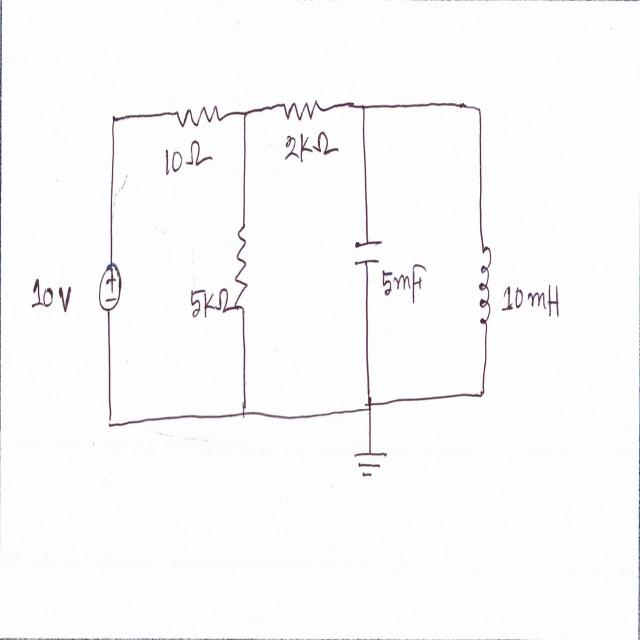 10Ω
2KΩ
10V
+
−
5KΩ
5mF
10mH